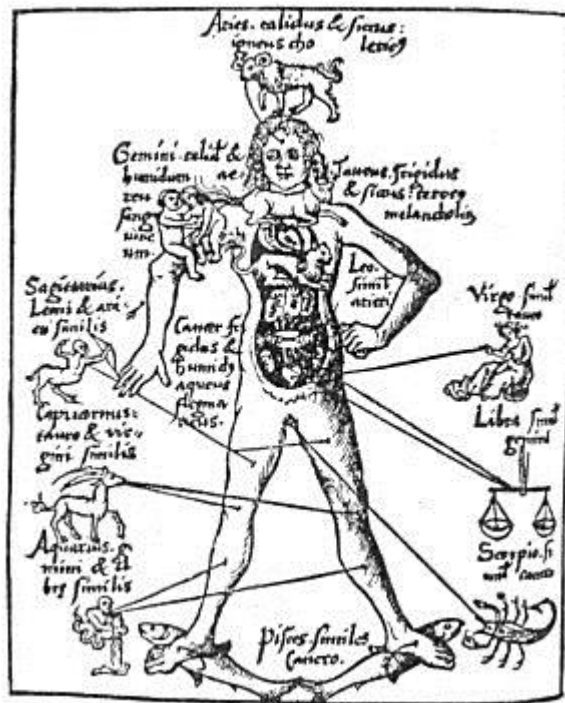 Aries. calidus & siccus:
igneus cho lericus
Gemini. calid &
humidum ae-
reu
sang
uine
um.
Taurus. frigidus
& siccus. terreus
melancolicus
Leo.
simil
arieti.
Sagittarius.
Leoni & ari-
eti similis
Cancer fri
gidus &
humidus
aqueus
flegma
ticus.
Virgo simil
tauro
Capricornus:
tauro & vir-
gini similis
Libra simil
gemini
Aquarius. ge
mini & li
bre similis
Scorpio. si
mil cancro
Pisces. similes
Cancro.